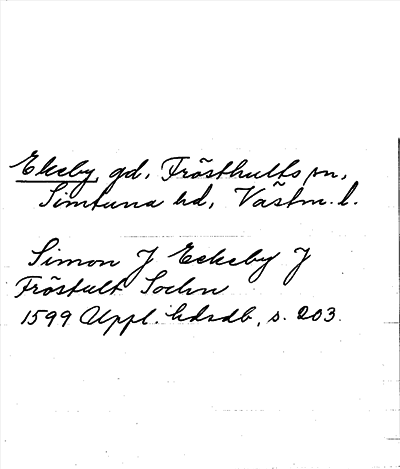 Ekeby, gd, Frösthults sn,
Simtuna hd, Västm. l.
Simon J Eckeby J
Fröstult Sochn
1599 Uppl. hdsdb, s. 203.